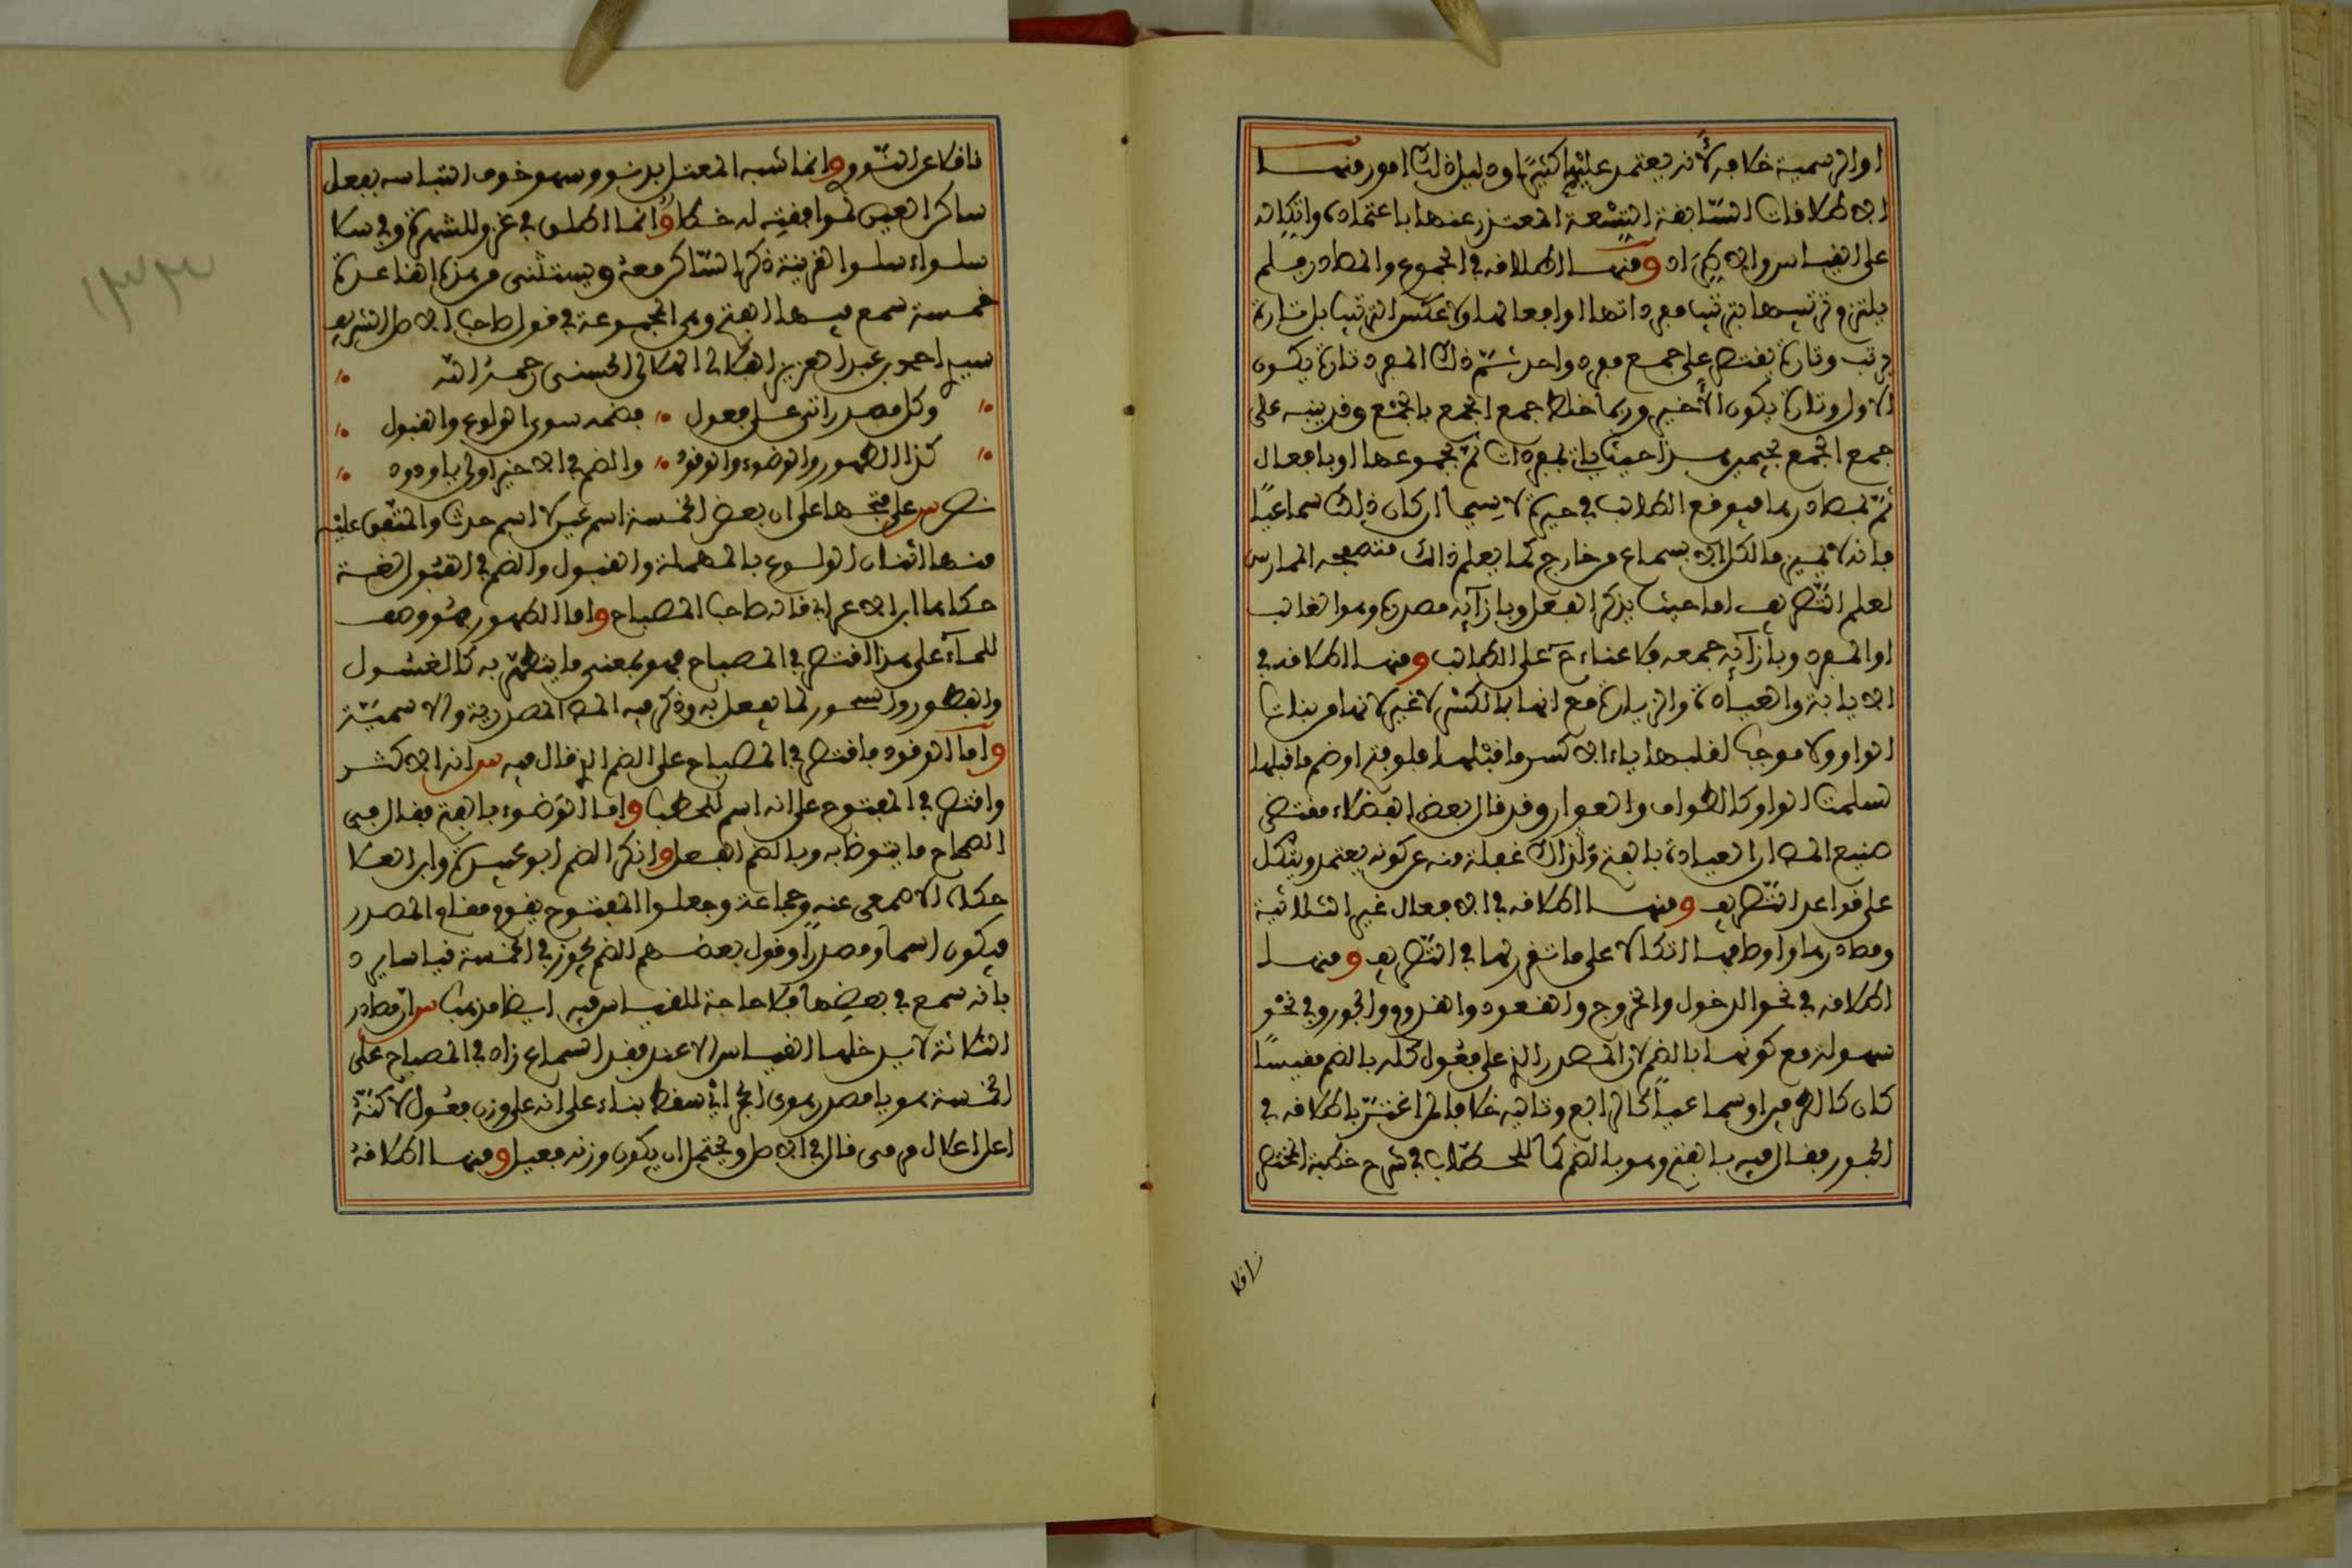 او الرسمية خلافه لأنه يعتمد عليها كثيرًا ودليل ذلك امور منها
الاطلاقات السابقة التسعة المعتذر عنها باعتماده واتكاله
على القياس والاطراد ومنها اطلاقه في الجموع والمصادر فلم
يلتزم ترتيبها بترتيب مفرداتها او افعالها ولا عكس الترتيب بل تارة
يرتب وتارة يقتصر على جمع مفرد واحد ثم ذلك المفرد تارة يكون
الاول وتارة يكون الأخير وربما خلط جمع الجمع بالجمع وقد ينبه على
جمع الجمع
ثم بمصادرها فيوقع الطالب في حيرة لا سيما ان كان ذلك سماعيًا
فانه لا يميز ما لكل الا بسماع من خارج كما يعلم ذلك متصفحه الممارس
لعلم التصريف اما حيث يذكر الفعل وبازآئه مصدره وهو الغالب
او المفرد وبأزآئه جمعه فلا عناء ح على الطالب ومنها اطلاقه في
الاياية والعيادة والزيارة مع انها بالكسر لا غير لانها من بنات
الواو ولا موجب لقلبها ياء الا كسر ما قبلها فلو فتح او ضم ما قبلها
لسلمت الواو كالطواف والعوار وقد قال بعض الفضلاء مقتضى
صنيع المص ان العيادة بالفتح وذاك غفلة منه عن كونه يعتمد ويتكل
على قواعد التصريف ومنها اطلاقه في الافعال غير الثلاثية
ومصادرها واوصافها اتكالا على ما تقرر لها في التصريف ومنها
اطلاقه في نحو الدخول والخروج والقعود والقدوم والجور وفي نحو
سهولة مع كونها بالضم لان المصدر الذي على فعول كله بالضم مقيسًا
كان كالاولين او سماعيًا كالرابع وتاليه خلافا لمن اغتر باطلاقه في
الحبور فقال فيه بالفتح وهو بالضم كما للحطاب في شرح خطبة المختصر
ناقلا
ناقلا عن النووي وانما شبه المعتل بدنو وسهو خوف التباسه بفعل
ساكن العين لموافقته له خطا وانما اطلق في غزو للشهرة وفي سلا
سلوا وسلوا لقرينة ذكر الساكن معه ويستثنى من هذه القاعدة
خمسة سمع فيها الفتح وهي المجموعة في قول صاحب الاصل الشريف
سيدي احمد بن عبد العزيز الهلالي الحسني رحمه الله
وكل مصدر اتى على فعول فضمه سوى الولوع والقبول
كذا الطهور والوضوء والوقود والضم في الاخير اولى يا ودود
نص س على فتحها على ان بعض الخمسة اسم عين لا اسم حدث والمتفق عليه
منها اثنان الولوع بالمهملة والقبول والضم في القبول لغة
حكاها ابن الاعرابي قاله صاحب المصباح واما الطهور فهو وصف
للمآء على هذا اقتصر في المصباح فهو بمعنى ما يتطهر به كالغسول
والفطور والسحور لما يفعل به وذكر فيه المص المصدرية والاسمية
واما الوقود فاقتصر في المصباح على الضم الذي قال فيه س انه الاكثر
واقتصر في المفتوح على انه اسم للحطب واما الوضوء بالفتح فقال في
الصحاح ما يتوضا به وبالضم الفعل وانكر الضم ابو عبيدة وابن العلا
حكاه الاصمعي عنه وجماعة وجعلوا المفتوح يقوم مقام المصدر
فيكون اسما ومصدرًا وقول بعضهم الضم يجوز في الخمسة قياسا يرد
بانه سمع في بعضها فلا حاجة للقياس فيه ايضا مذهب س ان مصادر
الثلاثة لا يدخلها القياس الا عند فقد السماع زاد في المصباح على
الخمسة هويا مصدر هوى الحجر اي سقط بناء على انه على وزن فعول لاكنه
اعل اعلال مرمى قال في الاصل ويحتمل ان يكون وزنه فعيل ومنها اطلاقه